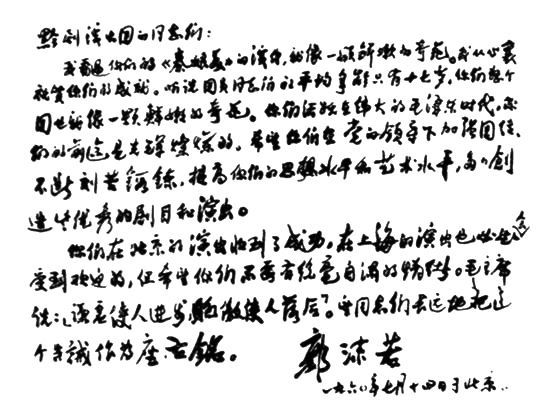 黔剧演出团的同志们：
我看过你们的《秦娘美》的演出，就像一颗鲜嫩的奇花。我从心里
祝贺你们的成就。听说团员同志们的平均年龄只有十七岁，你们整个
团也就像一颗鲜嫩的奇花。你们活跃在伟大的毛泽东时代，你
们的前途是光辉灿烂的。希望你们在党的领导下加强团结，
不断刻苦锻练，提高你们的思想水平和艺术水平，创
造出优秀的剧目和演出。
你们在北京的演出收到了成功，在上海的演出也必然会
受到欢迎的，但希望你们不要有丝毫自满的情绪。毛主席
说：谦虚使人进步，骄傲使人落后。望同志们永远地把这
个告诫作为座右铭。
郭沫若
一九六〇年七月十四日于北京